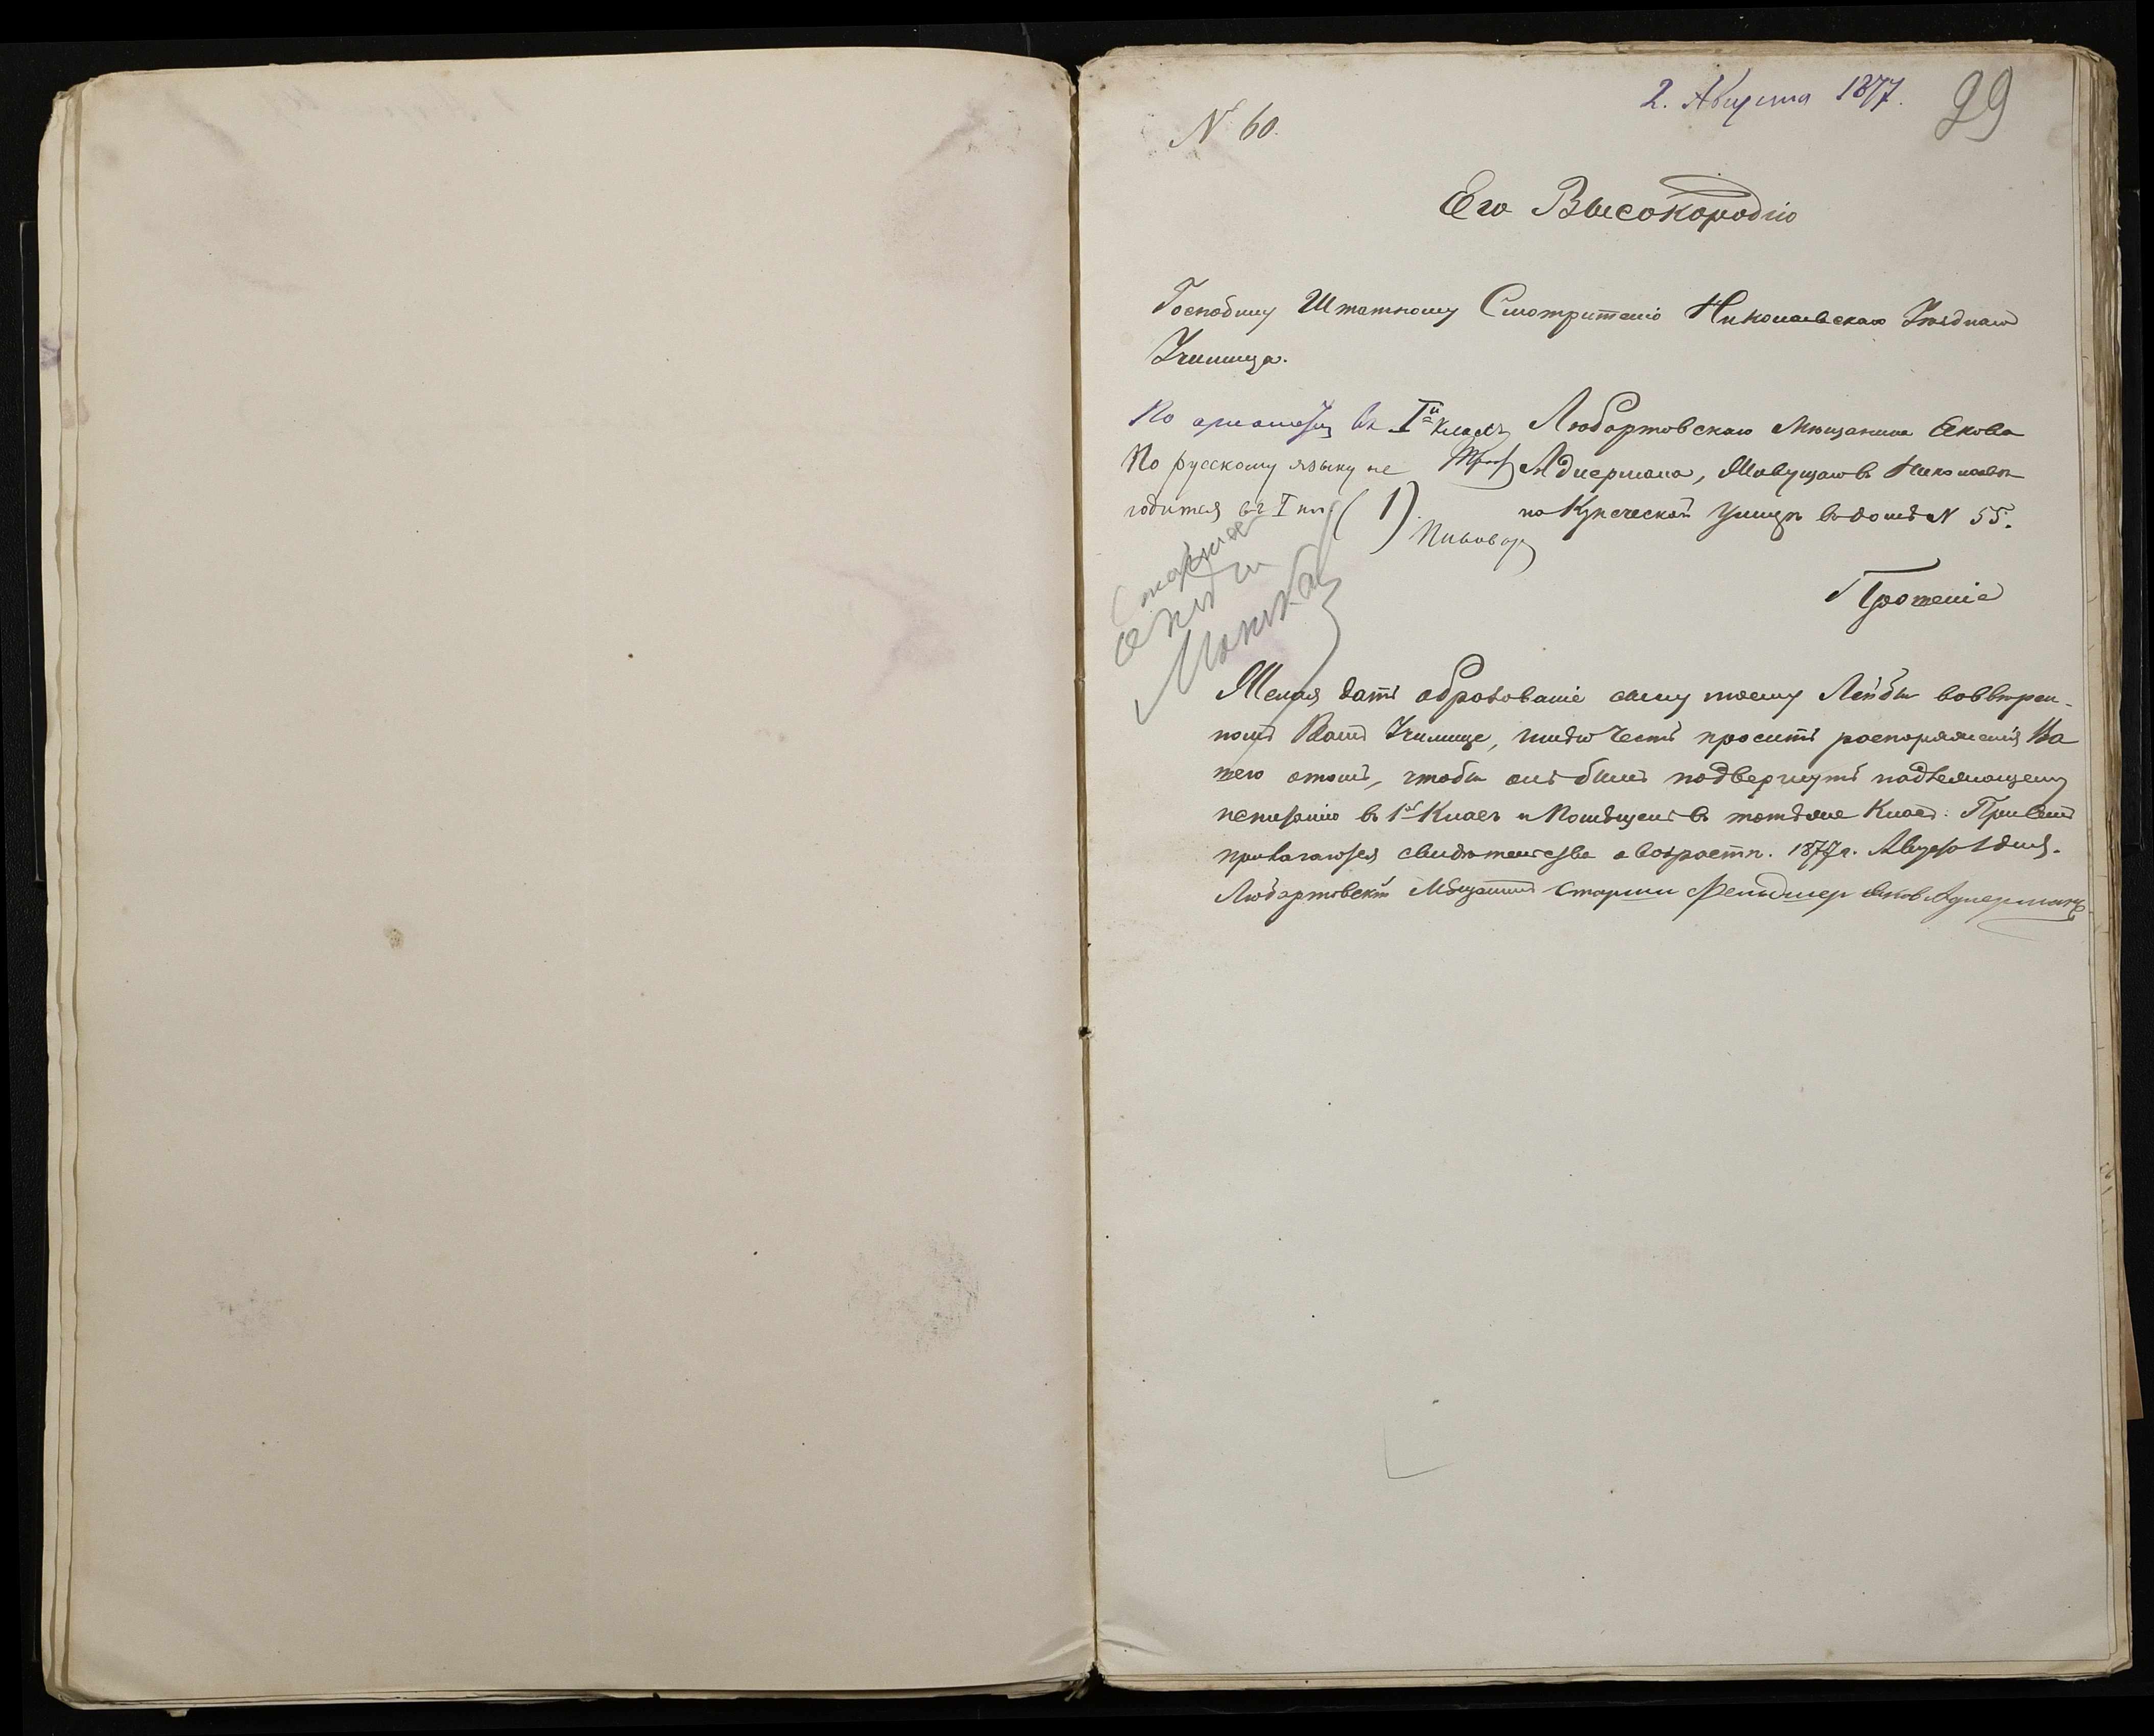 2. Августа 1877.
99
№ 60.
Его Высокородію
Господину Штатному Смотрителю Николаевскаго Уѣзднаго
Училища.
По ариѳмет. въ Iй классъ
По русскому языку не
годится въ I кл. (1)
Пивовар
Любартовскаго Мѣщанина Якова
Адлермана, Живущаго въ Николаевѣ
на Купеческой улицѣ въ домѣ N 55.
Прошеніе
Желая дать образованіе сыну моему Лейбѣ во ввѣрен-
номъ Вамъ Училище, имѣю Честь просить распоряженія Ва
шего о томъ, чтобы онъ былъ подвергнутъ надлежащему
испытанію въ 1й Класъ и Помѣщенъ въ тотъ же Класъ. При семъ
прилагаются свидѣтельства о возрастѣ. 1877 г. Августа 1 дня.
Любартовскій Мѣщанинъ Старши Фельдшер Яков Адлерманъ